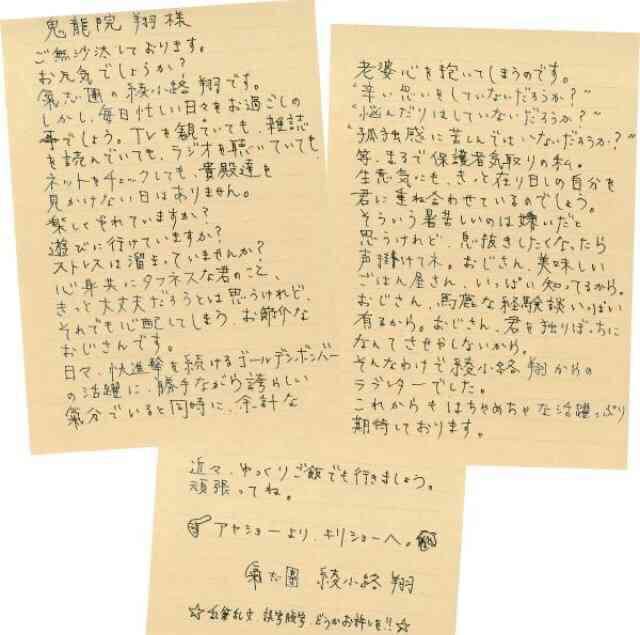 鬼龍院 翔 様
ご無沙汰しております。
お元気でしょうか?
氣志團の綾小路 翔です。
しかし、毎日忙しい日々をお過ごしの
事でしょう。TVを観ていても、雑誌
を読んでいても、ラジオを聴いていても、
ネットをチェックしても、貴殿達を
見かけない日はありません。
楽しくやれていますか?
遊びに行けていますか?
ストレスは溜まっていませんか?
心身共にタフネスな君のこと、
きっと大丈夫だろうとは思うけれど、
それでも心配してしまう、お節介な
おじさんです。
日々、快進撃を続けるゴールデンボンバー
の活躍に、勝手ながら誇らしい
氣分でいると同時に、余計な
老婆心を抱いてしまうのです。
"辛い思いをしていないだろうか?"
"悩んだりはしていないだろうか?"
"孤独感に苦しんではいないだろうか?"
等、まるで保護者気取りの私。
生意気にも、きっと在りし日の自分を
君に重ね合わせているのでしょう。
そういう暑苦しいのは嫌いだと
思うけれど、息抜きしたくなったら
声掛けてネ。おじさん、美味しい
ごはん屋さん、いっぱい知ってるから。
おじさん、馬鹿な経験談いっぱい
有るから。おじさん、君を独りぼっちに
なんてさせやしないから。
そんなわけで綾小路 翔からの
ラブレターでした。
これからもはちゃめちゃな活躍っぷり
期待しております。
近々、ゆっくりご飯でも行きましょう。
頑張ってね。
アヤショーより、キリショーへ。
氣志團 綾小路 翔
☆乱筆乱文、誤字脱字、どうかお許しを!!☆